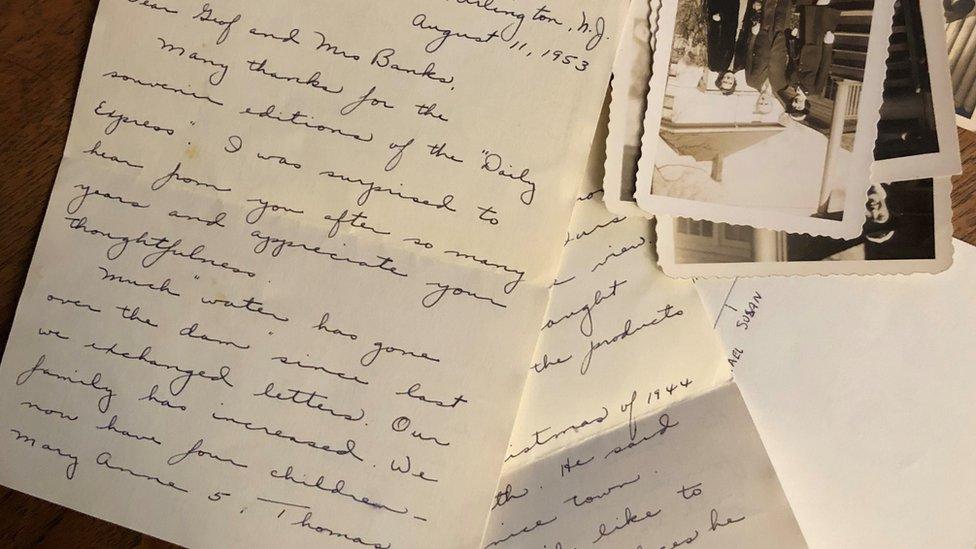 Arlington, N.J.
August 11, 1953
Dear Geof and Mrs Banks,
Many thanks for the
souvenir editions of the "Daily
Express". I was surprised to
hear from you after so many
years and appreciate your
thoughtfulness.
Much "water has gone
over the dam" since last
we exchanged letters. Our
family has increased. We
now have four children –
Mary Anne 5, Thomas
view.
the products
of 1944
He said
town.
like to
he
SUSAN